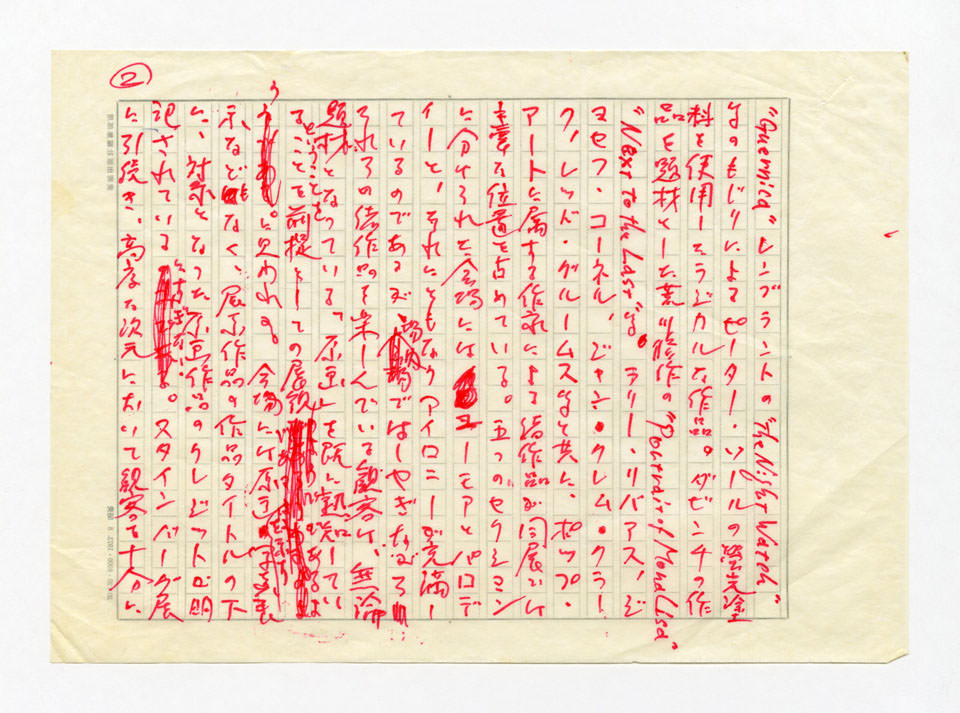 ②
"Guernica" レンブラントの "The Night Watch"
等のもじりによるピーター・ソールの螢光塗
料を使用したラジカルな作品。ダビンチの作
品を題材とした荒川修作の "Portrait of Mona Lisa"
"Next to the Last" 等。ラリー・リバアス、ジ
ヨセフ・コーネル、ジャン・クレム・クラー
ク、レッド・グルームス等と共に、ポップ・
アートに属する作家による諸作品が同展では
主要な位置を占めている。五つのセクション
に分けられた会場には ユーモアとパロデ
ィーと、それにともなうアイロニーが充満し
ているのであるが 場内 ではしやぎながら
それらの諸作品を楽しんでいる観客は、無論
題材となっている「原画」を既に熟知してい
るということを前提としての展観
う に思われる。会場には原画
示などもなく、展示作品の作品タイトルの下
に、対象となった原画作品のクレジットが明
記されている にすぎない。スタインバーグ展
に引続き、高度な次元において観客を十分に